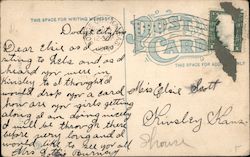 THIS SPACE FOR WRITING MESSAGES
POST CARD
THIS SPACE FOR AD
Dodge City Kans
Dear Elsie as I was
writing to Febs and as I
heard you were in
Kinsley so I thought I
would drop you a card
how are you girls getting
along I am doing nicely
I will be through there
before very long and I
would like to see you all
Mrs Burning
Miss Elsie Scott
Kinsley Kans.
House